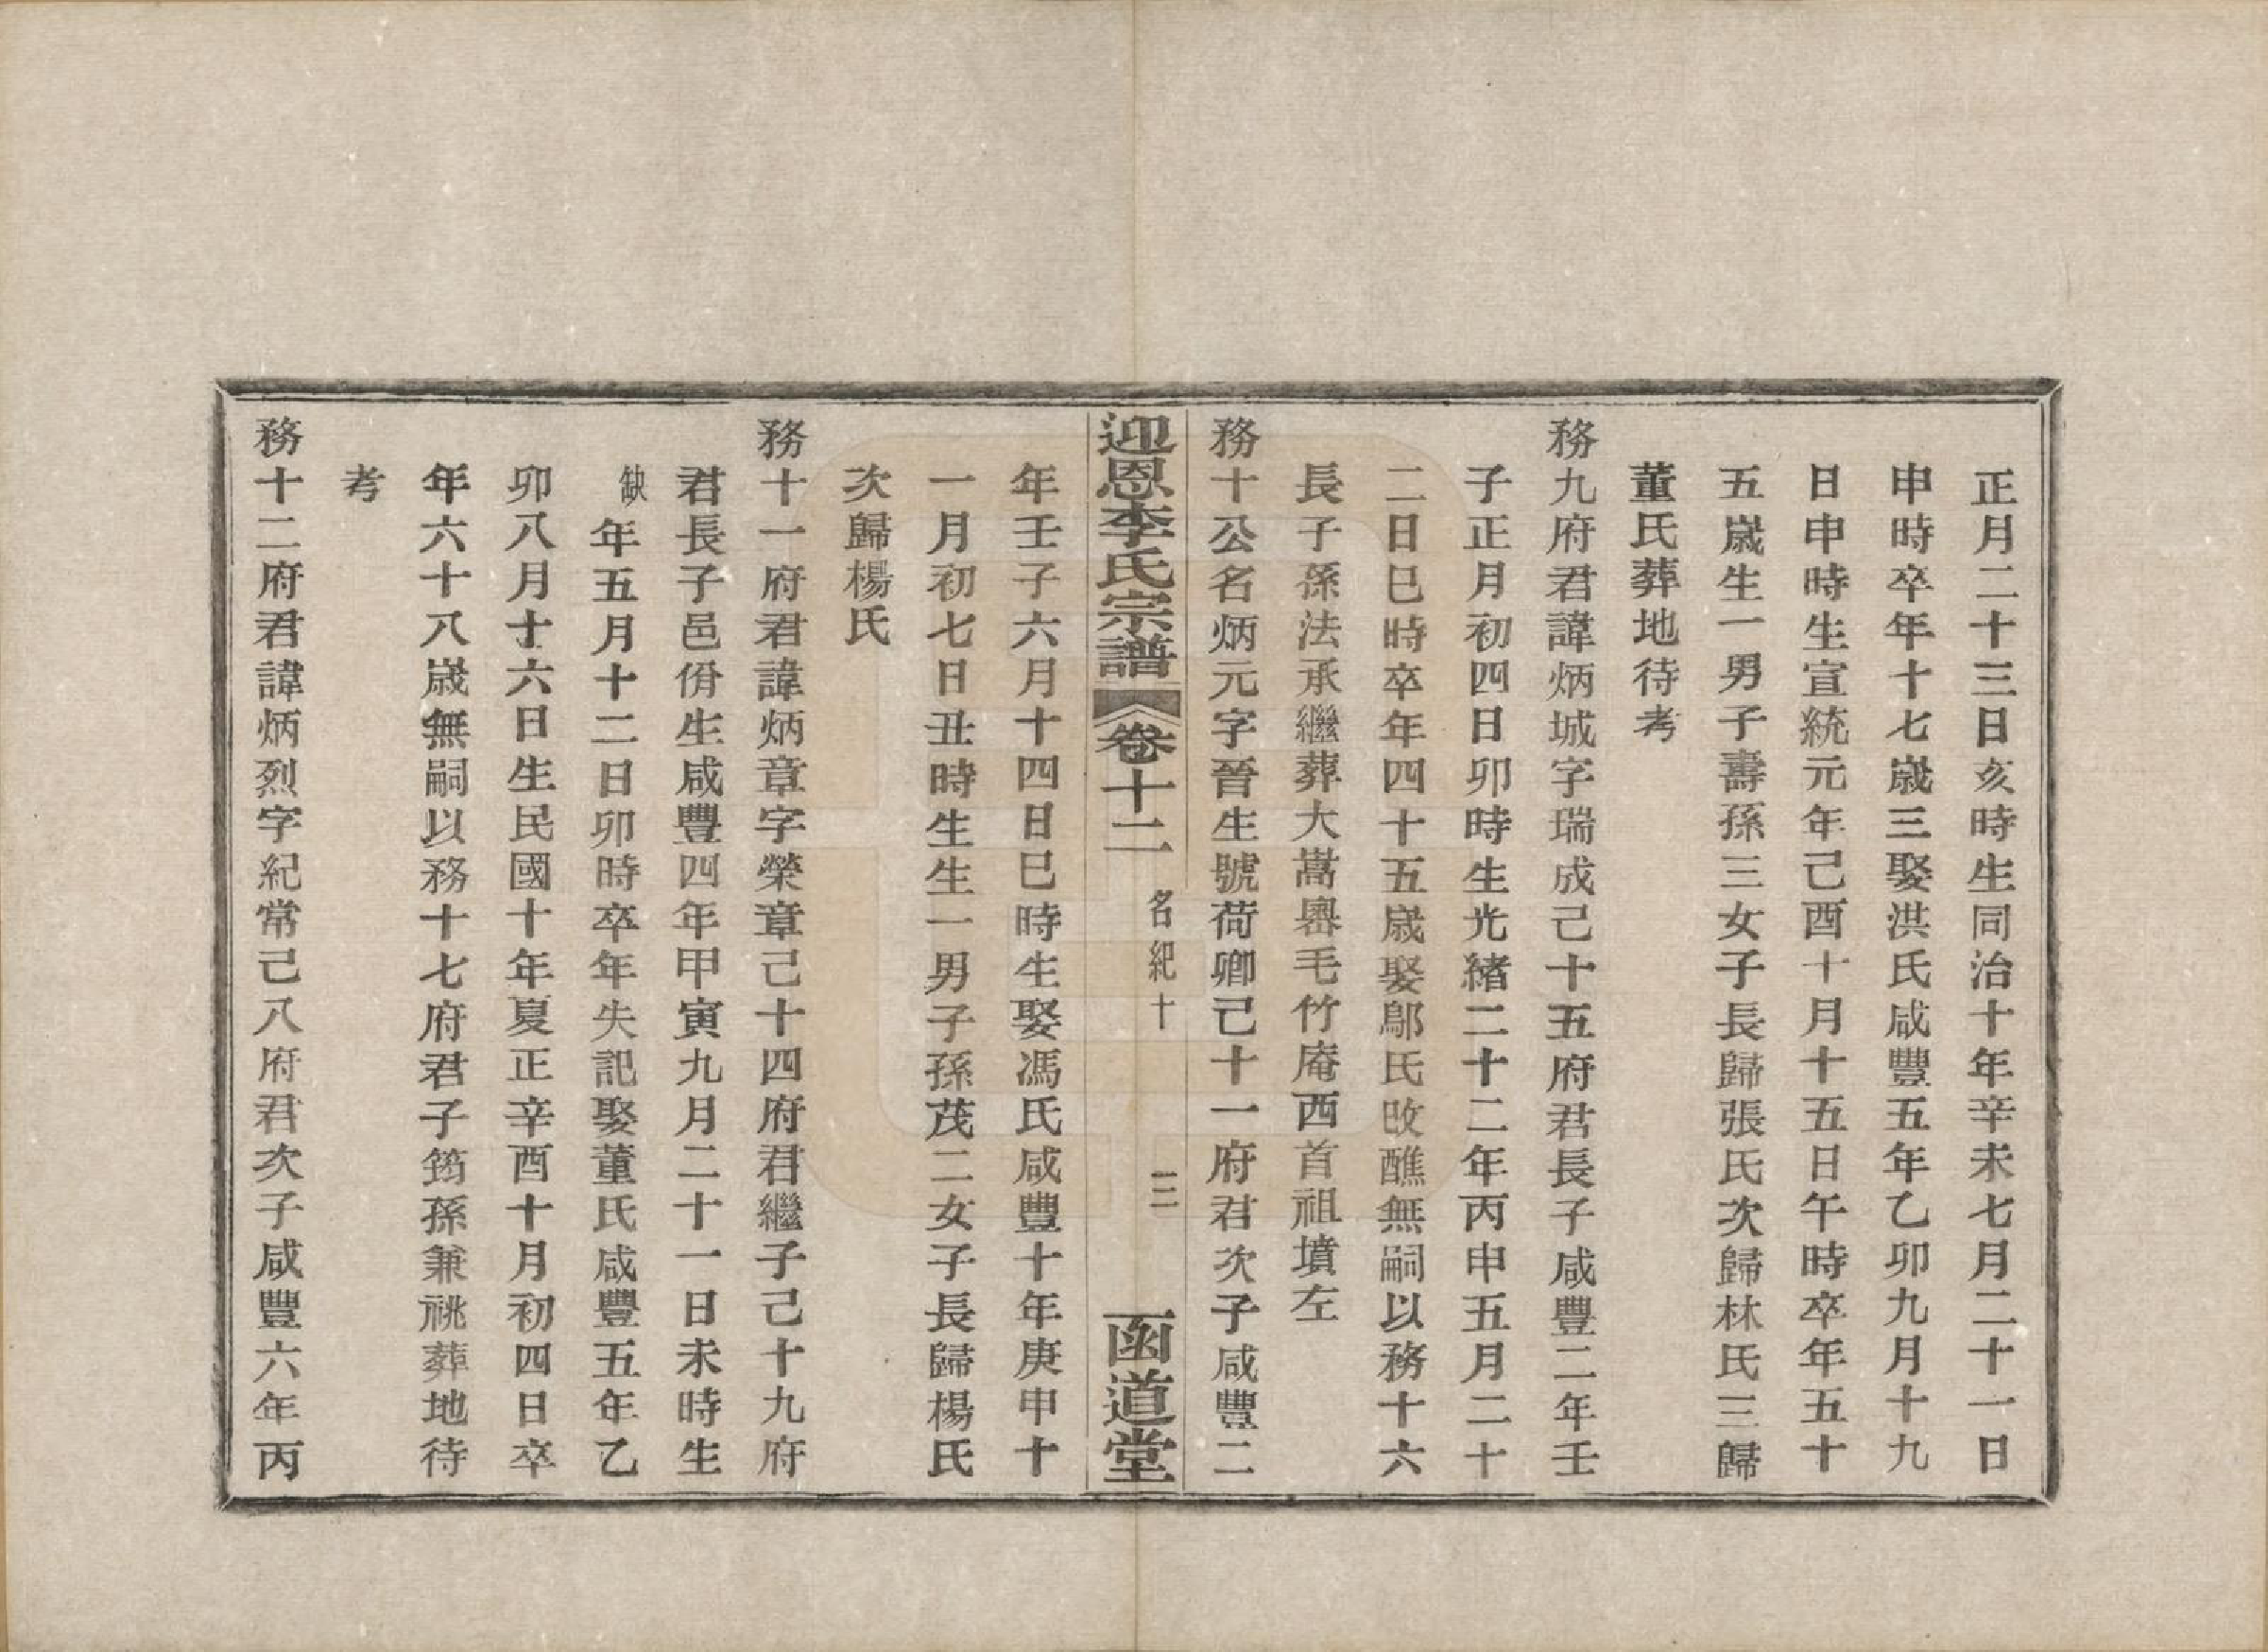 正月二十三日亥時生同治十年辛未七月二十一日
申時卒年十七歲三娶洪氏咸豐五年乙卯九月十九
日申時生宣統元年己酉十月十五日午時卒年五十
五歲生一男子壽孫三女子長歸張氏次歸林氏三歸
董氏葬地待考
務九府君諱炳城字瑞成己十五府君長子咸豐二年壬
子正月初四日卯時生光緒二十二年丙申五月二十
二日巳時卒年四十五歲娶鄔氏改醮無嗣以務十六
長子孫法承繼葬大嵩嶴毛竹庵西首祖墳左
務十公名炳元字晉生號荷卿己十一府君次子咸豐二
迎恩李氏宗譜 卷十二 名紀十 三 函道堂
年壬子六月十四日巳時生娶馮氏咸豐十年庚申十
一月初七日丑時生生一男子孫茂二女子長歸楊氏
次歸楊氏
務十一府君諱炳章字榮章己十四府君繼子己十九府
君長子邑佾生咸豐四年甲寅九月二十一日未時生
缺年五月十二日卯時卒年失記娶董氏咸豐五年乙
卯八月十六日生民國十年夏正辛酉十月初四日卒
年六十八歲無嗣以務十七府君子筠孫兼祧葬地待
考
務十二府君諱炳烈字紀常己八府君次子咸豐六年丙